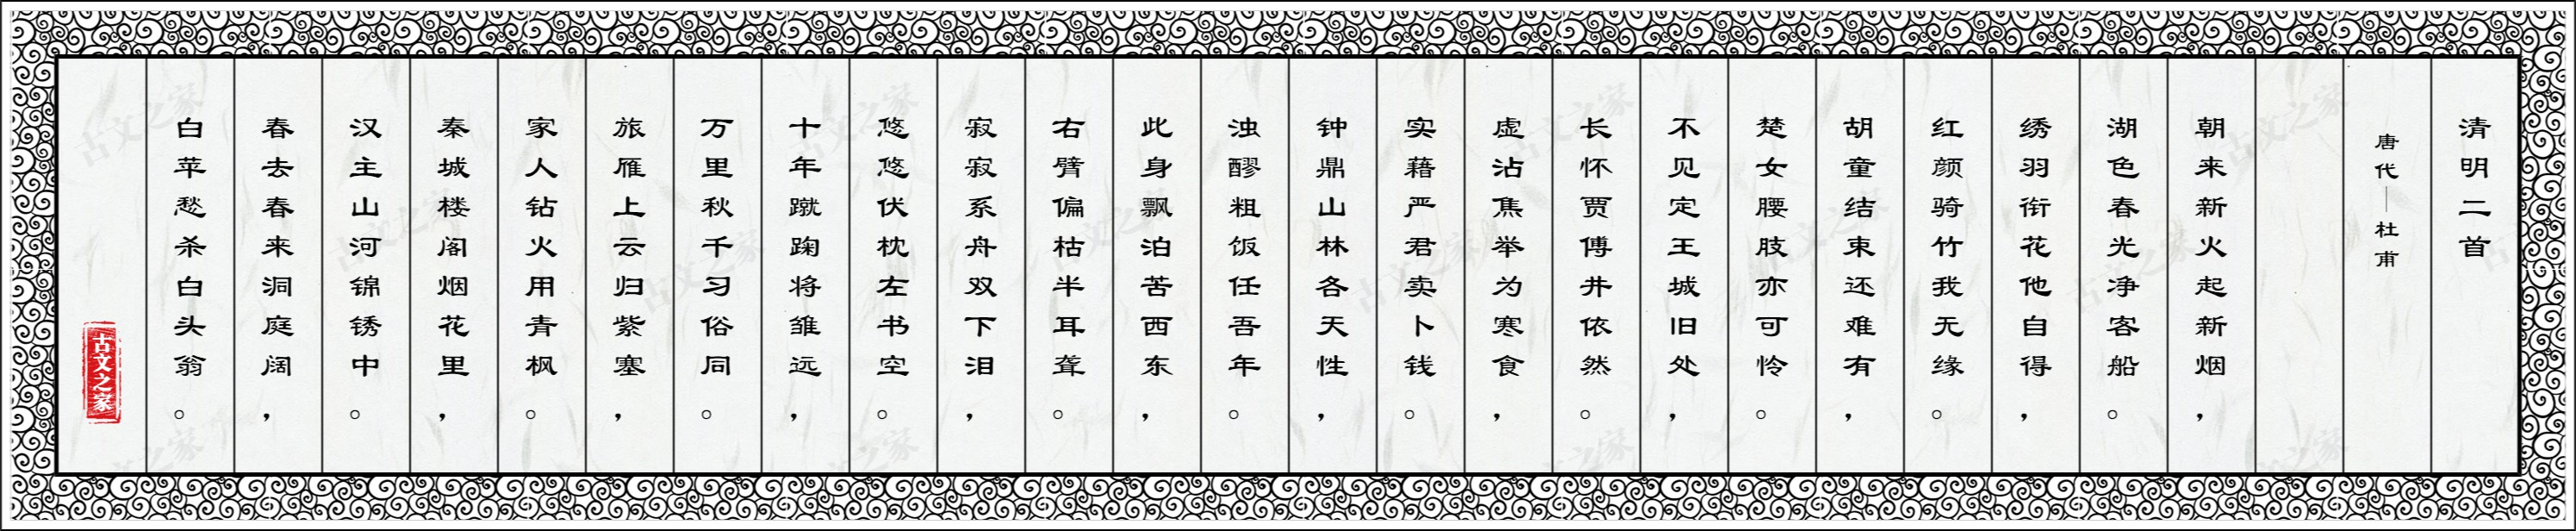 清明二首
唐代—杜甫
朝来新火起新烟，
湖色春光净客船。
绣羽衔花他自得，
红颜骑竹我无缘。
胡童结束还难有，
楚女腰肢亦可怜。
不见定王城旧处，
长怀贾傅井依然。
虚沾焦举为寒食，
实藉严君卖卜钱。
钟鼎山林各天性，
浊醪粗饭任吾年。
此身飘泊苦西东，
右臂偏枯半耳聋。
寂寂系舟双下泪，
悠悠伏枕左书空。
十年蹴踘将雏远，
万里秋千习俗同。
旅雁上云归紫塞，
家人钻火用青枫。
秦城楼阁烟花里，
汉主山河锦锈中。
春去春来洞庭阔，
白苹愁杀白头翁。
古文之家